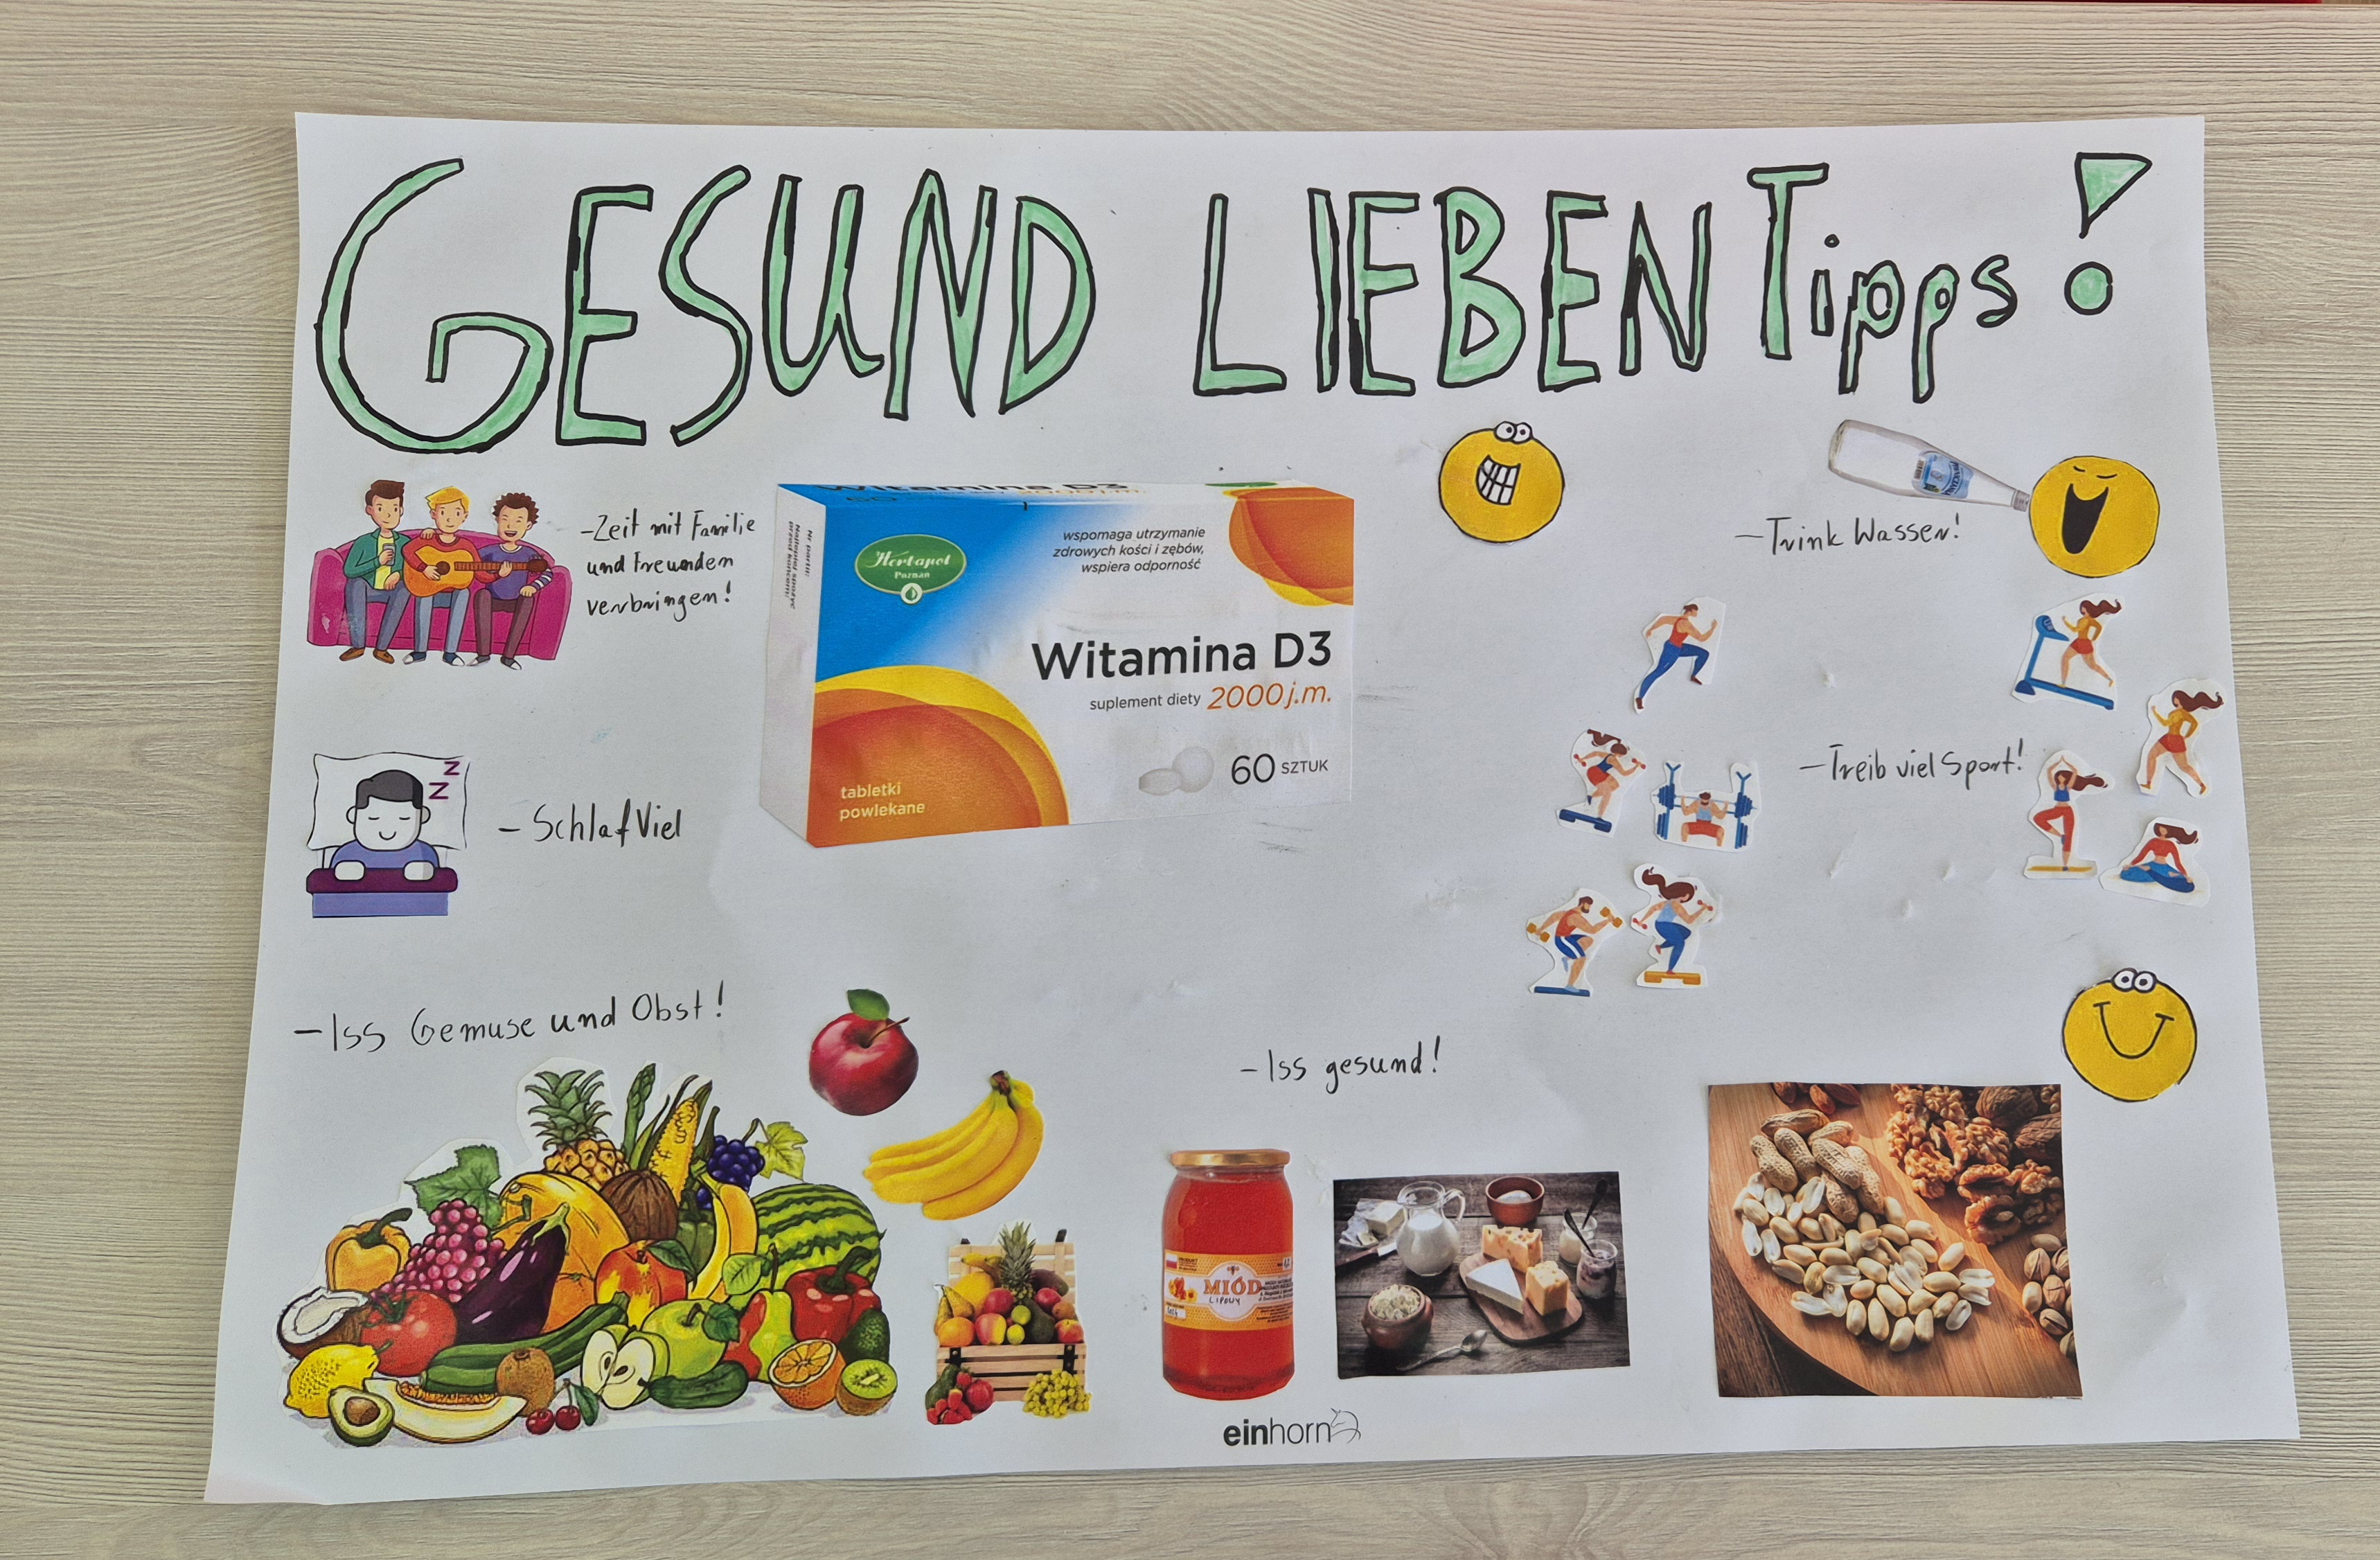 GESUND LIEBEN Tipps!
-Zeit mit Familie
und Freunden
verbringen!
Witamina D3
Herbapol
Poznań
wspomaga utrzymanie
zdrowych kości i zębów,
wspiera odporność
Witamina D3
suplement diety 2000 j.m.
60 SZTUK
tabletki
powlekane
-Trink Wasser!
-Treib viel Sport!
zZ
- Schlaf Viel
-Iss Gemuse und Obst!
-Iss gesund!
MIÓD
LIPOWY
einhorn